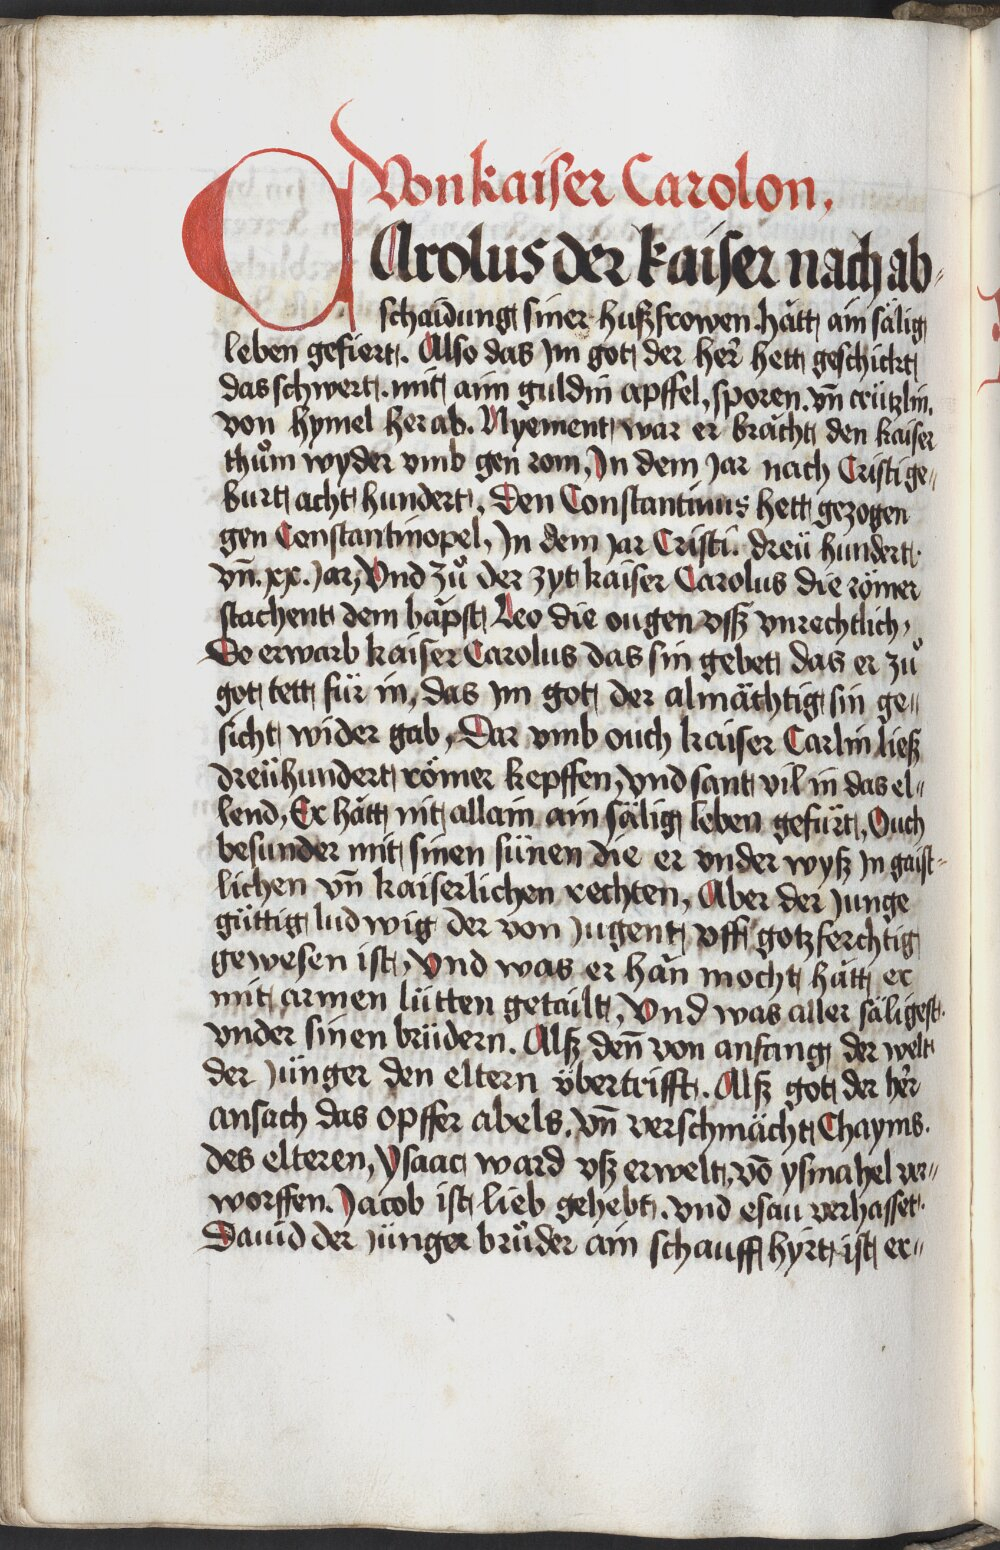 Von kaiser Carolon,
CArolus der kaiser nach ab„
schaidung siner hußfrowen. hått ain sälig
leben gefiert. Also das im got der her̄ hett geschickt
das schwert. mit aim guldin apffel, sporen. vn̄ crützlin.
von hymel her ab. Nyement war er bråcht den kaiser
thům wyder vmb gen rom, In dem jar nach Cristi ge„
burt acht hundert, Den Constantinus hett gezogen
gen Constantinopel, In dem jar Cristi. dreü hundert.
vn̄. xx. jar, Vnd zů der zyt kaiser Carolus die römer
stachent dem båpst Leo die ougen vsß vnrechtlich,
Do erwarb kaiser Carolus das sin gebet das er zů
got tett für in, das im got der almächtig sin ge„
sicht wider gab, Dar vmb ouch kaiser Carlin ließ
dreühundert römer kepffen, vnd sant vil in das el„
lend, Er hått nit allain ain sälig leben gefürt, Ouch
besunder mit sinen sünen die er vnder wyß in gaist„
lichen vn̄ kaiserlichen rechten, Aber der junge
güttig ludwig der von jugent vff gotzferchtig
gewesen ist, Vnd was er hån mocht hått er
mit armen lütten getailt, Vnd was aller säligest.
vnder sinen brüdern. Alß den̄ von anfang der welt
der jünger den eltern übertrifft. Alß got der her̄
ansach das opffer abels. vn̄ verschmächt Chayms.
des elteren, Ysaac ward vß erwelt, vō ysmahel ver„
worffen. Jacob ist lieb gehebt. vnd esau verhasset.
Dauid der jünger brůder ain schauff hyrt ist er„